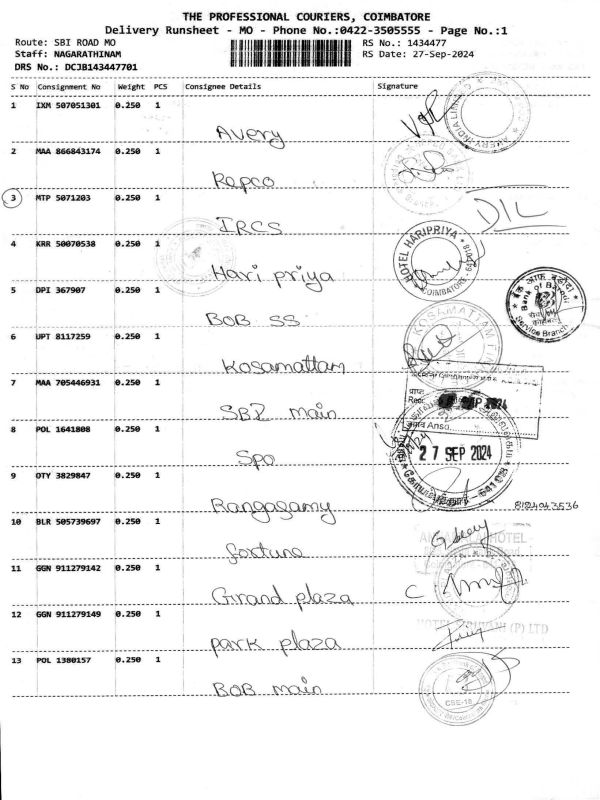 THE PROFESSIONAL COURIERS, COIMBATORE
Delivery Runsheet - MO - Phone No.:0422-3505555 - Page No.:1
Route: SBI ROAD MO
RS No.: 1434477
Staff: NAGARATHINAM
RS Date: 27-Sep-2024
DRS No.: DCJB143447701
S No Consignment No Weight PCS Consignee Details Signature
1 IXM 507051301 0.250 1
Avery
2 MAA 866843174 0.250 1
Repco
3 MTP 5071203 0.250 1
IRCS
4 KRR 50070538 0.250 1
HOTEL HARIPRIYA
COIMBATORE
Hari priya
5 DPI 367907 0.250 1
Bank of Baroda
Service Branch
BOB SS
6 UPT 8117259 0.250 1
KOSAMATTAM
Kosamattam
7 MAA 705446931 0.250 1
SEP 2024
SBI main
8 POL 1641808 0.250 1
27 SEP 2024
Spo
9 OTY 3829847 0.250 1
Rangasamy
8124043536
10 BLR 505739697 0.250 1
HOTEL
fortune
11 GGN 911279142 0.250 1
Grand plaza
12 GGN 911279149 0.250 1
(P) LTD
park plaza
13 POL 1380157 0.250 1
BOB main
CBE-18